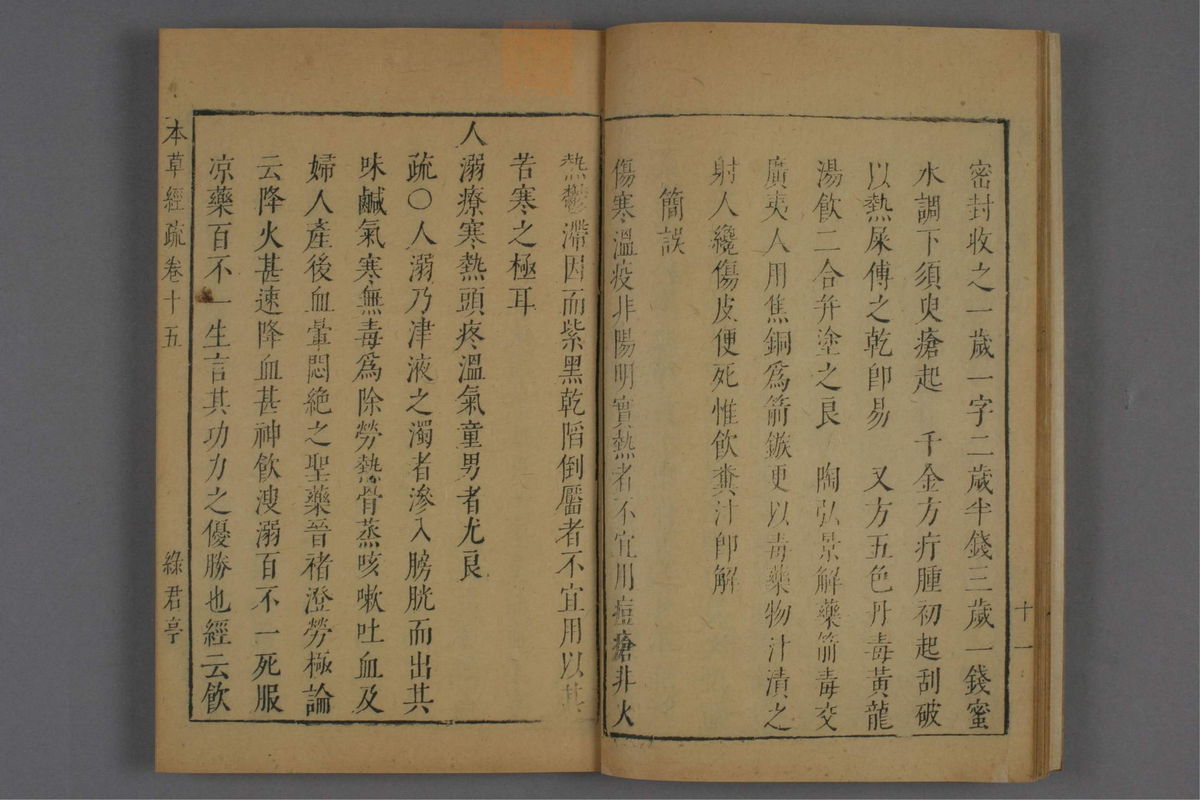 密封收之一歲一字二歲半錢三歲一錢蜜
水調下須臾瘡起 千金方疔腫初起刮破
以熱屎傅之乾卽易 又方五色丹毒黃龍
湯飲二合幷塗之良 陶弘景解藥箭毒交
廣夷人用焦銅爲箭鏃更以毒藥物汁漬之
射人纔傷皮便死惟飲糞汁卽解
簡誤
傷寒溫疫非陽明實熱者不宜用痘瘡非火
十一
熱鬱滯因而紫黑乾陷倒靨者不宜用以其
苦寒之極耳
人溺療寒熱頭疼溫氣童男者尤良
疏〇人溺乃津液之濁者滲入膀胱而出其
味鹹氣寒無毒爲除勞熱骨蒸咳嗽吐血及
婦人產後血暈悶絶之聖藥晉褚澄勞極論
云降火甚速降血甚神飲溲溺百不一死服
凉藥百不一生言其功力之優勝也經云飲
本草經疏卷十五 綠君亭